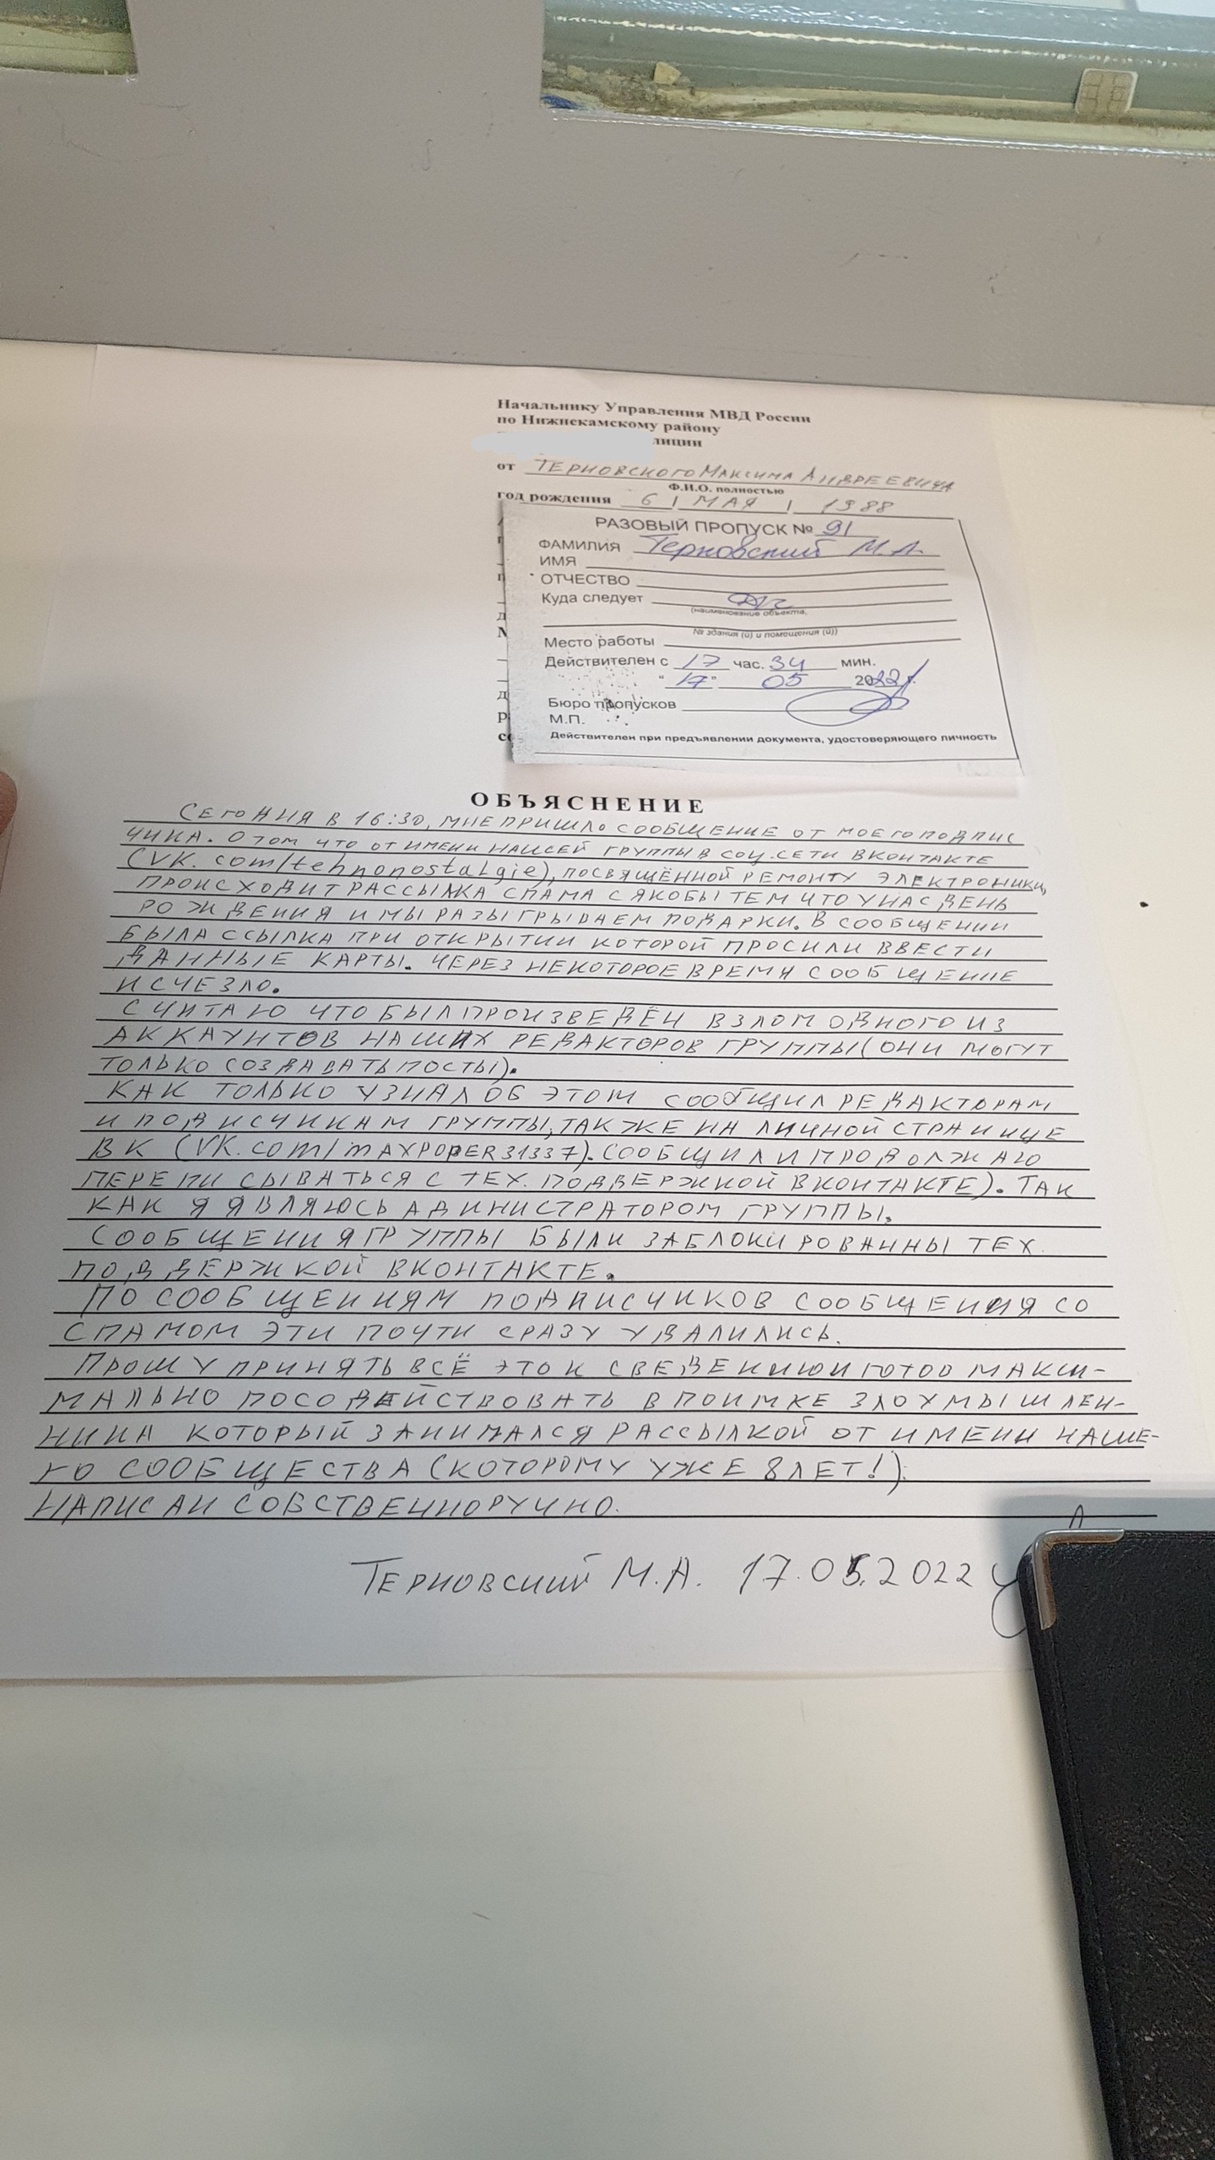 Начальнику Управления МВД России
по Нижнекамскому району
лиции
от ТЕРНОВСКОГО МАКСИМА АНДРЕЕВИЧА
Ф.И.О. полностью
год рождения 6 | МАЯ | 1988
РАЗОВЫЙ ПРОПУСК № 91
ФАМИЛИЯ Терновский М.А.
ИМЯ
ОТЧЕСТВО
Куда следует
(наименование объекта,
№ здания (й) и помещения (й))
Место работы
Действителен с 17 час. 34 мин.
"17" 05 2022 г.
Бюро пропусков
М.П.
Действителен при предъявлении документа, удостоверяющего личность
ОБЪЯСНЕНИЕ
СЕГОДНЯ В 16:30, МНЕ ПРИШЛО СООБЩЕНИЕ ОТ МОЕГО ПОДПИС
ЧИКА. О ТОМ ЧТО ОТ ИМЕНИ НАШЕЙ ГРУППЫ В СОЦ. СЕТИ ВКОНТАКТЕ
(VK.com/tehnonostalgie), ПОСВЯЩЁННОЙ РЕМОНТУ ЭЛЕКТРОНИКИ,
ПРОИСХОДИТ РАССЫЛКА СПАМА С ЯКОБЫ ТЕМ ЧТО У НАС ДЕНЬ
РОЖДЕНИЯ И МЫ РАЗЫГРЫВАЕМ ПОДАРКИ. В СООБЩЕНИИ
БЫЛА ССЫЛКА ПРИ ОТКРЫТИИ КОТОРОЙ ПРОСИЛИ ВВЕСТИ
ДАННЫЕ КАРТЫ. ЧЕРЕЗ НЕКОТОРОЕ ВРЕМЯ СООБЩЕНИЕ
ИСЧЕЗЛО.
СЧИТАЮ ЧТО БЫЛ ПРОИЗВЕДЁН ВЗЛОМ ОДНОГО ИЗ
АККАУНТОВ НАШИХ РЕДАКТОРОВ ГРУППЫ (ОНИ МОГУТ
ТОЛЬКО СОЗДАВАТЬ ПОСТЫ).
КАК ТОЛЬКО УЗНАЛ ОБ ЭТОМ СООБЩИЛ РЕДАКТОРАМ
И ПОДПИСЧИКАМ ГРУППЫ, ТАКЖЕ НА ЛИЧНОЙ СТРАНИЦЕ
ВК (VK.COM/MAXPOPER31337). СООБЩИЛ И ПРОДОЛЖАЮ
ПЕРЕПИСЫВАТЬСЯ С ТЕХ. ПОДДЕРЖКОЙ ВКОНТАКТЕ). ТАК
КАК Я ЯВЛЯЮСЬ АДМИНИСТРАТОРОМ ГРУППЫ.
СООБЩЕНИЯ ГРУППЫ БЫЛИ ЗАБЛОКИРОВАННЫ ТЕХ.
ПОДДЕРЖКОЙ ВКОНТАКТЕ.
ПО СООБЩЕНИЯМ ПОДПИСЧИКОВ СООБЩЕНИЯ СО
СПАМОМ ЭТИ ПОЧТИ СРАЗУ УДАЛИЛИСЬ.
ПРОШУ ПРИНЯТЬ ВСЁ ЭТО К СВЕДЕНИЮ И ГОТОВ МАКСИ-
МАЛЬНО ПОСОДЕЙСТВОВАТЬ В ПОИМКЕ ЗЛОУМЫШЛЕН-
НИКА КОТОРЫЙ ЗАНИМАЛСЯ РАССЫЛКОЙ ОТ ИМЕНИ НАШЕ-
ГО СООБЩЕСТВА (КОТОРОМУ УЖЕ 8 ЛЕТ!).
НАПИСАН СОБСТВЕННОРУЧНО.
ТЕРНОВСКИЙ М.А. 17.05.2022